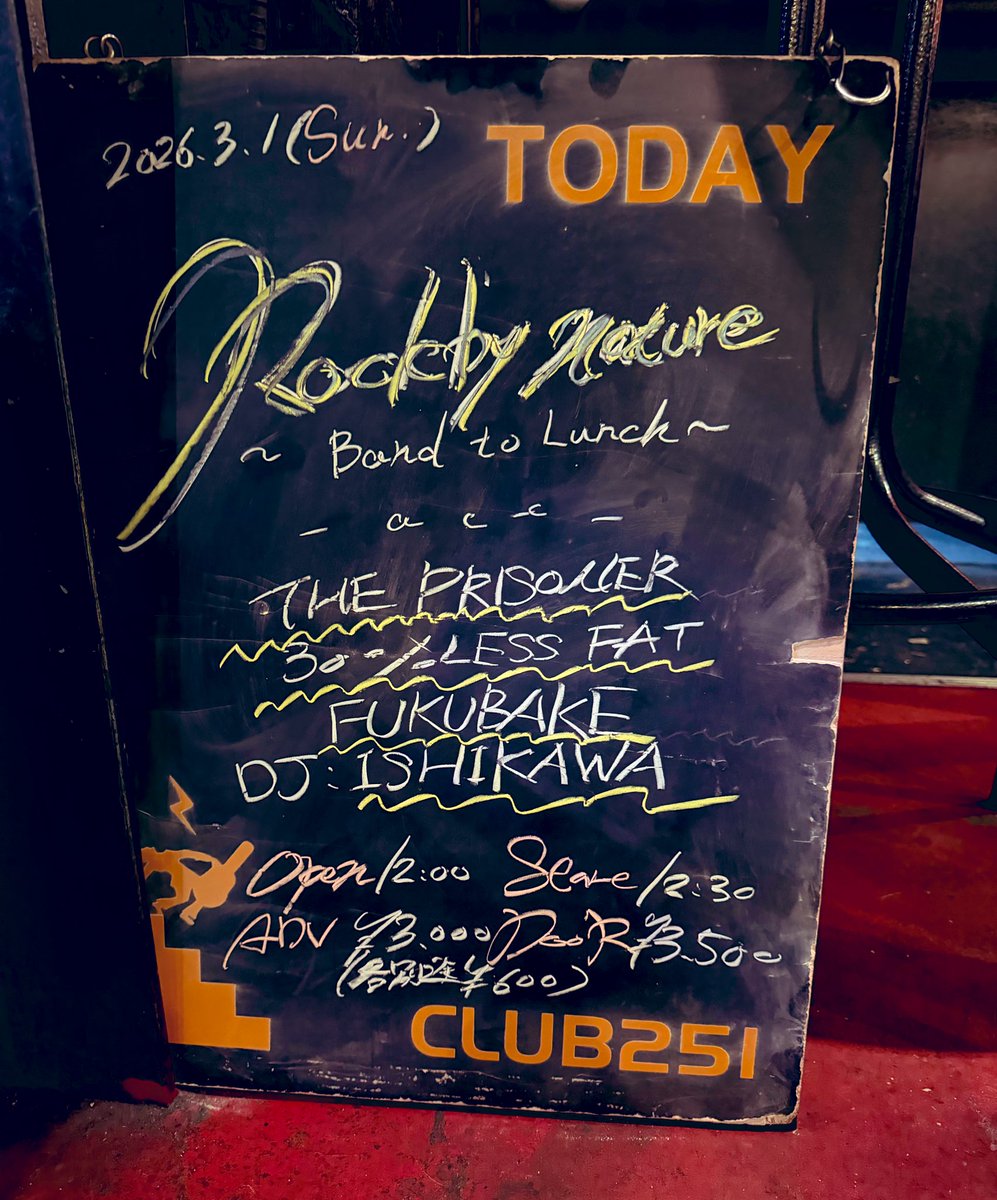 2026.3.1(Sun.)
TODAY
Rock by nature
~ Band to Lunch ~
- act -
THE PRISONER
30%LESS FAT
FUKUBAKE
DJ: ISHIKAWA
Open/12:00 Start/12:30
ADV ¥3.000 DOOR ¥3.500
(各別途¥600)
CLUB251